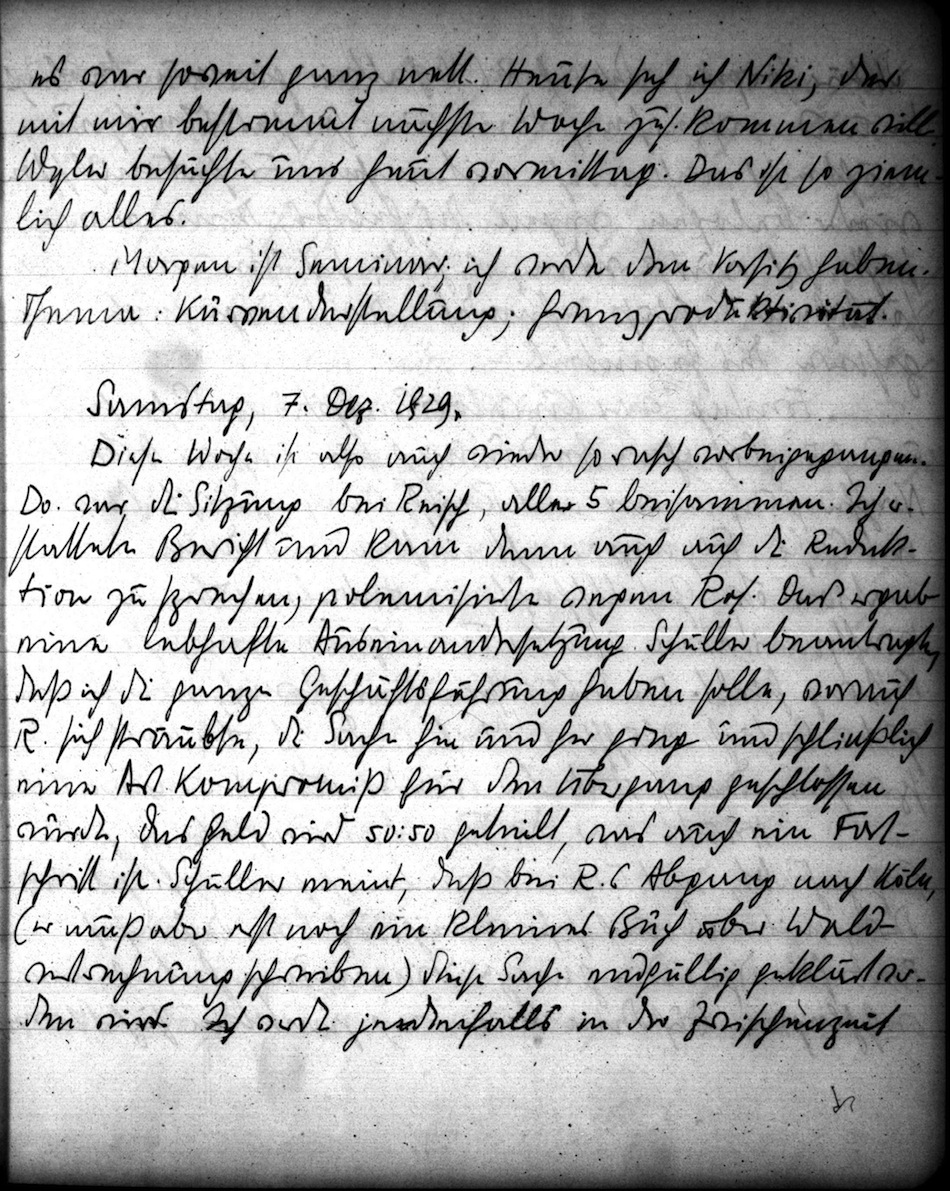 es war soweit ganz nett. Heute sah ich Niki, der
mit mir bestimmt nächste Woche zus. kommen will.
Wyler besuchte uns heut vormittag. Das ist so ziem-
lich alles.
Morgen ist Seminar; ich werde den Vorsitz haben.
Thema: Kurvendarstellung; Grenzproduktivität.
Samstag, 7. Dez. 1929.
Diese Woche ist also auch wieder so rasch vorbeigegangen.
Do. war die Sitzung bei Reisch, alle 5 beisammen. Ich er-
stattete Bericht und kam dann auch auf die Redak-
tion zu sprechen, polemisierte wegen Ros. Das ergab
eine lebhafte Auseinandersetzung. Schüller beantragte,
daß ich die ganze Geschäftsführung haben solle, worauf
R. sich sträubte, die Sache hin und her ging und schließlich
eine Art Kompromiß für den Übergang geschlossen
wurde, das Geld wird 50:50 geteilt, was auch ein Fort-
schritt ist. Schüller meint, daß bei R.s Abgang nach Köln,
(er muß aber erst noch ein kleines Buch über Wald-
schreiben) diese Sache endgültig geklärt wer-
den wird. Ich werde jedenfalls in der Zwischenzeit